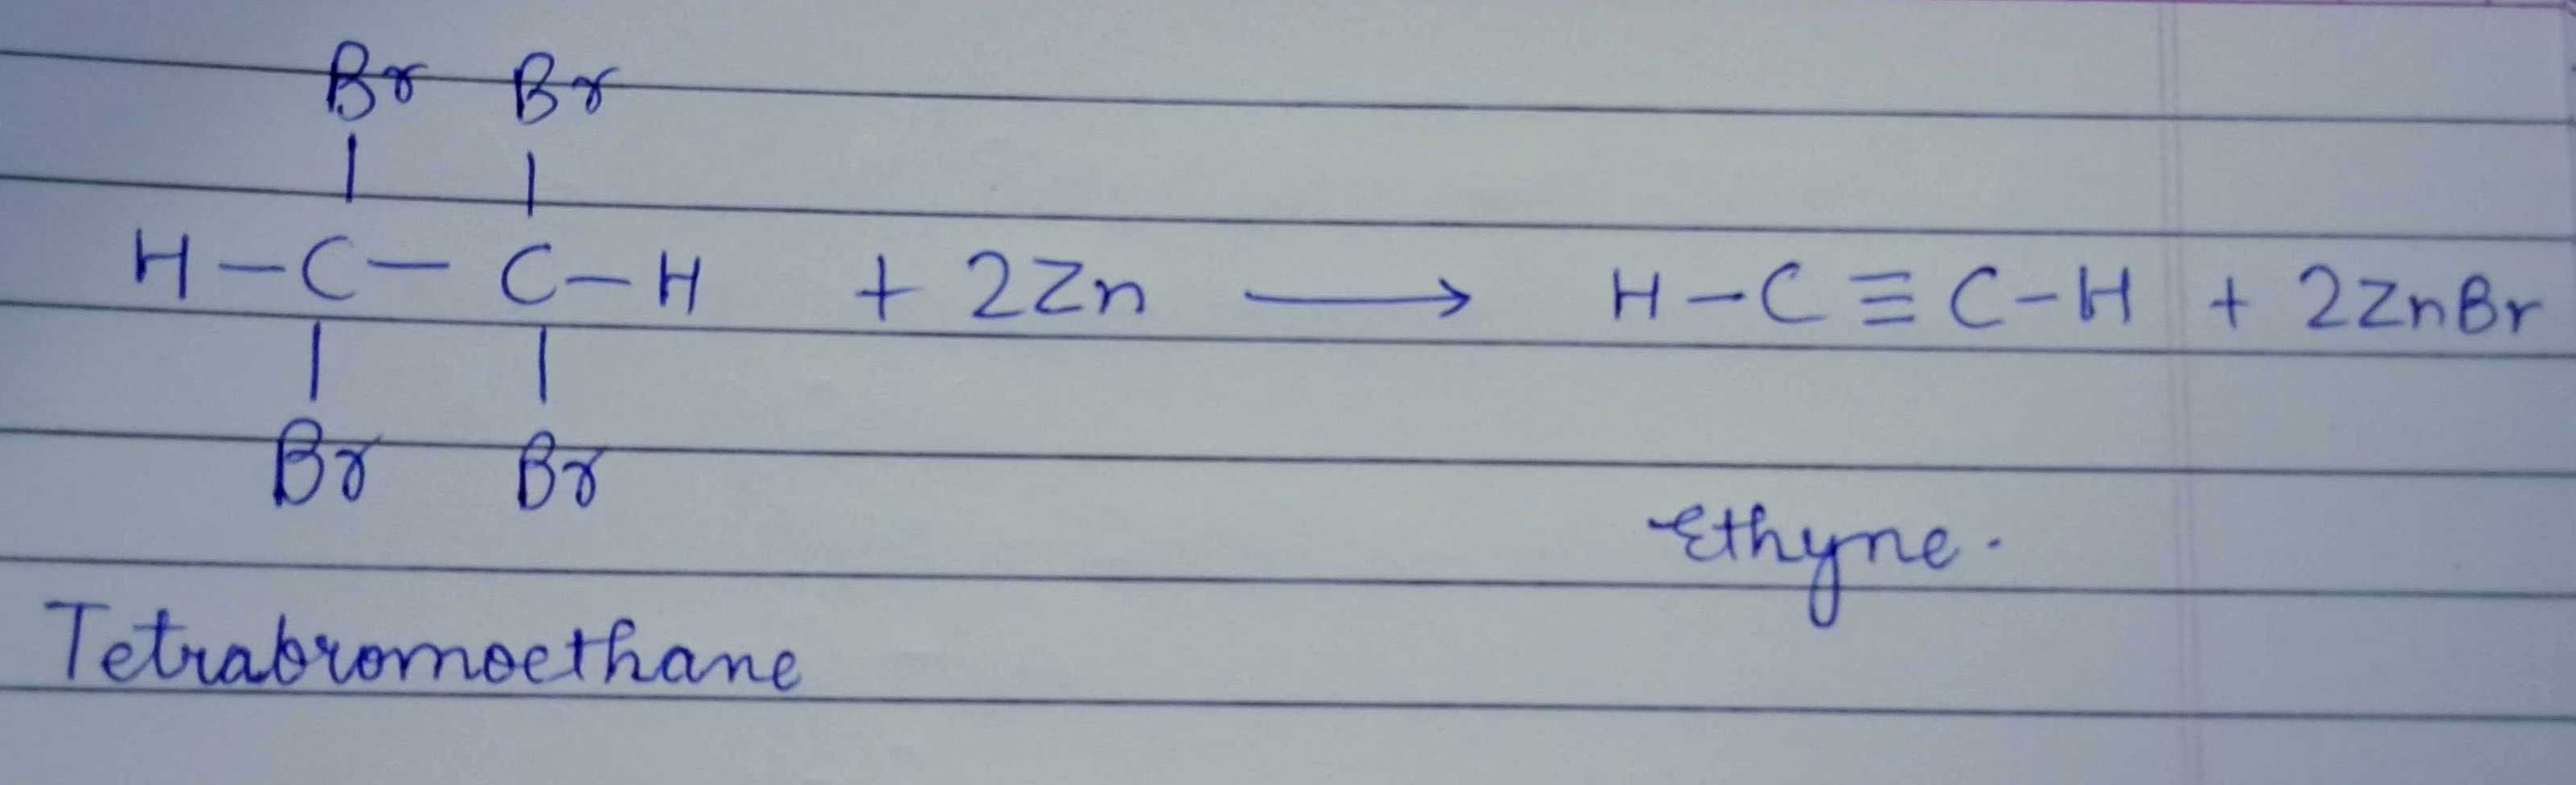 Br Br
| |
H-C-C-H + 2Zn ⟶ H-C≡C-H + 2ZnBr
| |
Br Br
Ethyne.
Tetrabromoethane